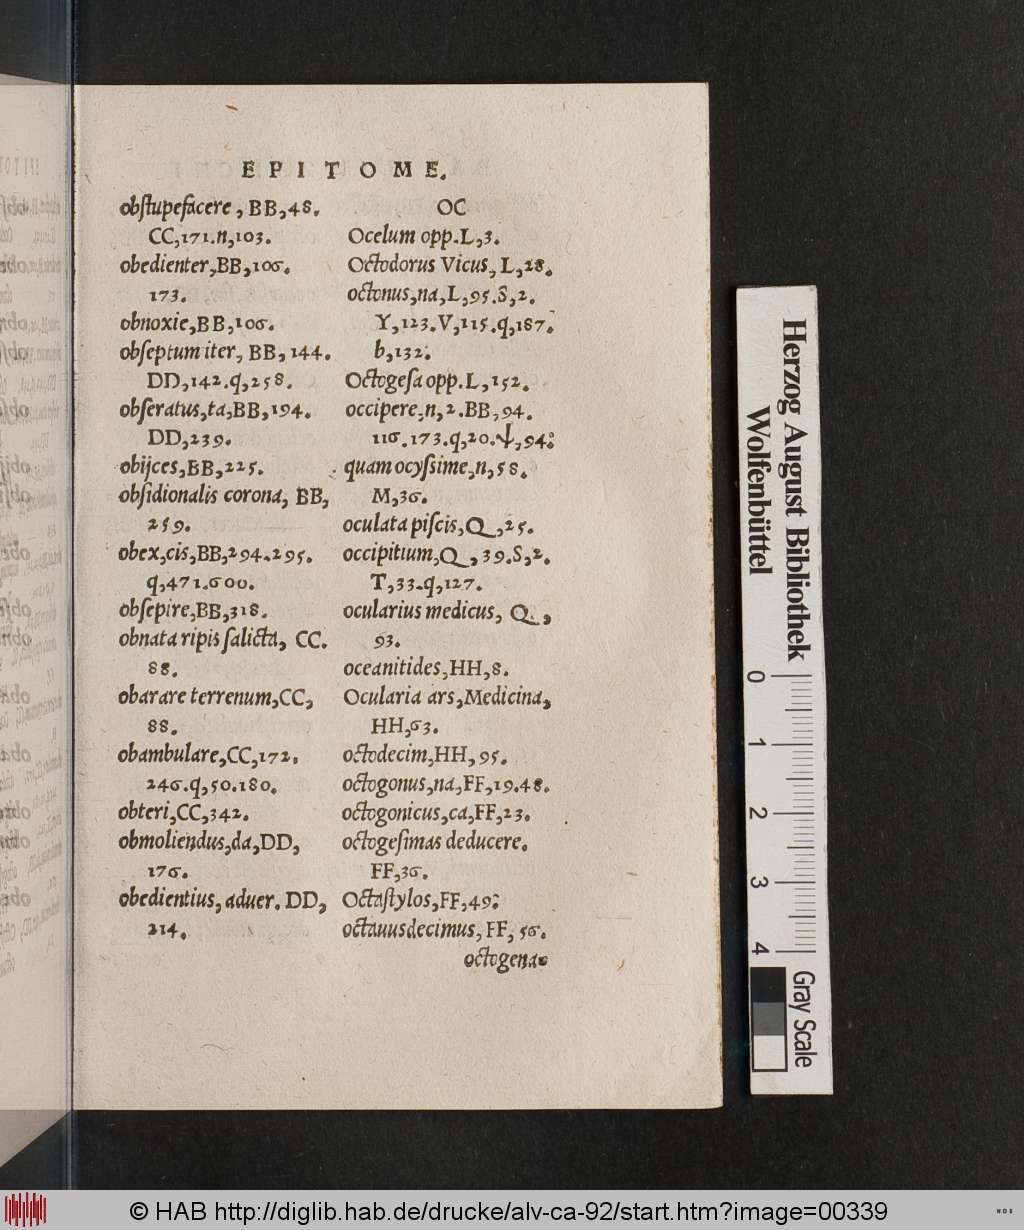 EPITOME.
obſtupefacere, BB,48.
CC,171.n,103.
obedienter,BB,106.
173.
obnoxie,BB,106.
obſeptum iter, BB, 144.
DD,142.q,258.
obſeratus,ta,BB,194.
DD,239.
obijces,BB,225.
obſidionalis corona, BB,
259.
obex,cis,BB,294.295.
q,471.600.
obſepire,BB,318.
obnata ripis ſalicta, CC.
88.
obarare terrenum,CC,
88.
obambulare,CC,172.
246.q,50.180.
obteri,CC,342.
obmoliendus,da,DD,
176.
obedientius, aduer. DD,
214.
OC
Ocelum opp.L,3.
Octodorus Vicus, L,28.
octonus,na,L,95.S,2.
Y,123.V,115.q,187.
b,132.
Octogeſa opp.L,152.
occipere,n,2.BB,94.
116.173.q,20.ψ,94.
quam ocyſsime,n,58.
M,36.
oculata piſcis,Q,25.
occipitium,Q,39.S,2.
T,33.q,127.
ocularius medicus, Q,
93.
oceanitides,HH,8.
Ocularia ars,Medicina,
HH,63.
octodecim,HH,95.
octogonus,na,FF,19.48.
octogonicus,ca,FF,23.
octogeſimas deducere.
FF,36.
Octaſtylos,FF,49.
octauusdecimus, FF, 56.
octogena
Herzog August Bibliothek
Wolfenbüttel
0
1
2
3
4
Gray Scale
© HAB http://diglib.hab.de/drucke/alv-ca-92/start.htm?image=00339